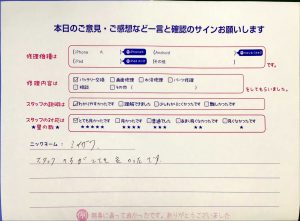 本日のご意見・ご感想など一言と確認のサインお願いします
修理機種は
iPhone
Android
iPad
その他
です。
修理内容は
バッテリー交換 画面修理 水没修理 パーツ修理
相談 その他(
をしてもらいました。
スタッフの説明は わかりやすかったです 理解できました 少しわかりにくかったです 難しかったです
スタッフの対応は とても良かったです 良かったです 普通でした あまり良くなかったです 良くなかったです
★星の数★ ★★★★★ ★★★★ ★★★ ★★ ★
ニックネーム:
スタッフの方がとても良かったです。
無事に直って良かったです。ありがとうございました